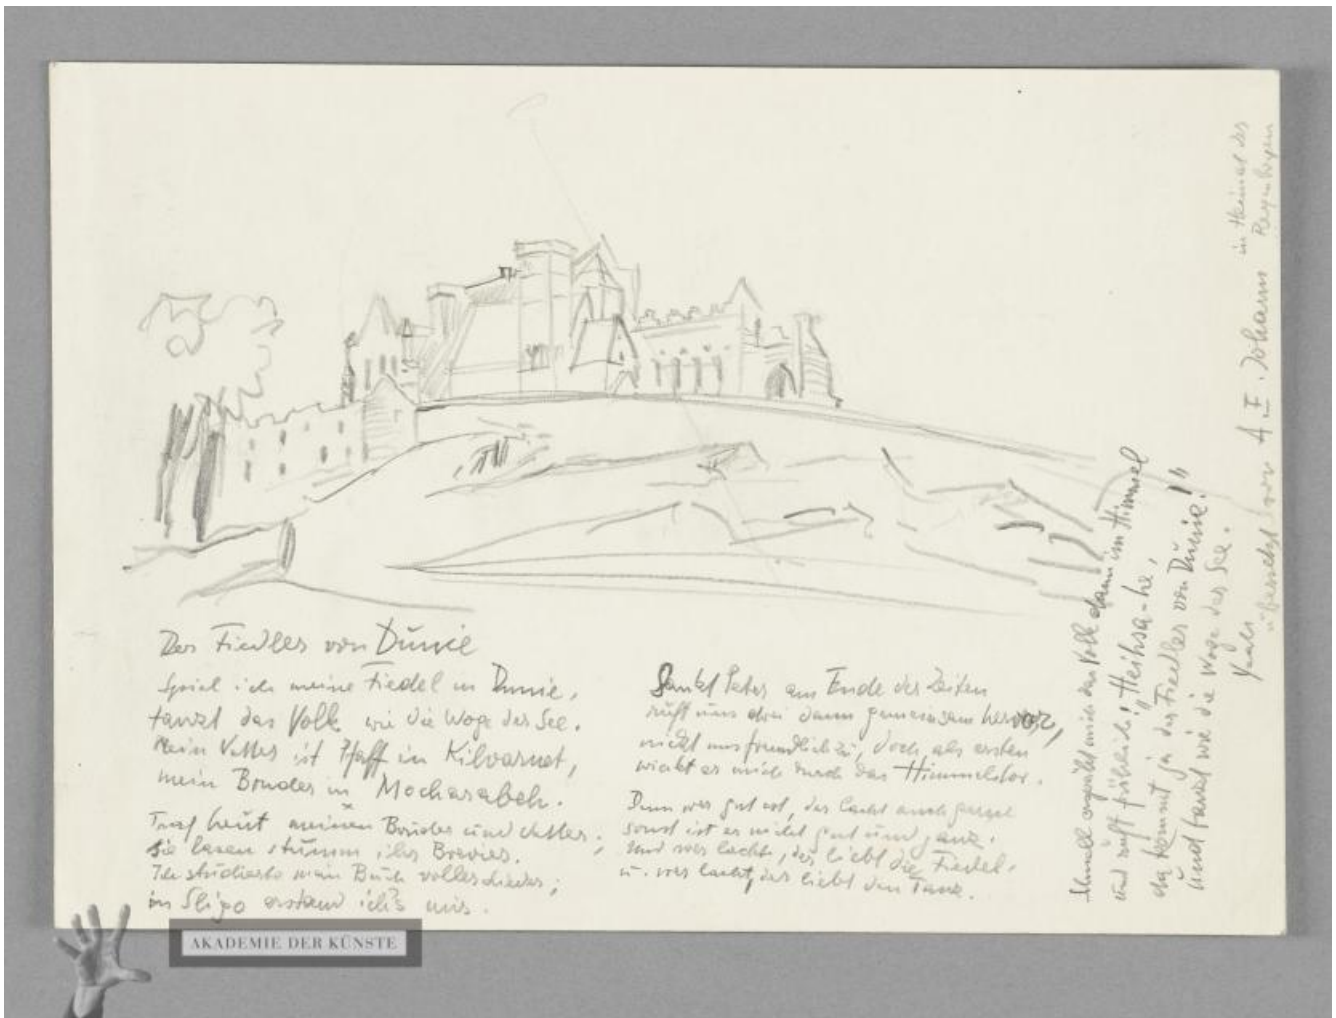 Der Fiedler von Dunie
Spiel ich meine Fiedel in Dunie,
tanzt das Volk wie die Woge der See.
Mein Vetter ist Pfaff in Kilvarnet,
mein Bruder in Mocharabeh.
Traf heut meinen Bruder und Vetter;
sie lasen stumm ihr Brevier.
Ich studierte mein Buch voller Lieder;
in Sligo erstand ich's mir.
Sankt Peter am Ende der Zeiten
ruft uns drei dann gemeinsam hervor,
nickt uns freundlich zu, doch als ersten
winkt er mich durch das Himmelstor.
Denn wer gut ist, der lacht auch gerne
sonst ist er nicht gut und ganz.
Und wer lacht, der liebt die Fiedel,
u. wer lacht, der liebt den Tanz.
Schnell erspäht mich das Volk dann im Himmel
und ruft fröhlich: "Heihsa-he,
da kommt ja der Fiedler von Dunie!"
und tanzt wie die Woge der See.
Yeats
übersetzt von A. E. Johann in Heimat der
Regenbogen
AKADEMIE DER KÜNSTE